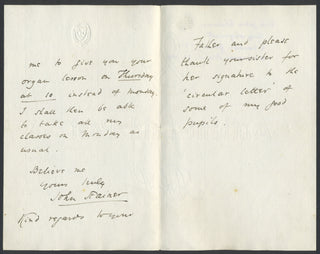 me to give you your
organ lesson on Thursday
at 10. instead of Monday.
I shall then be able
to take all my
classes on Monday as
usual.
Believe me
yours truly
John Farmer
Kind regards to your
Father and please
thank your sister for
her signature to the
'circular letter' of
some of my good
pupils.